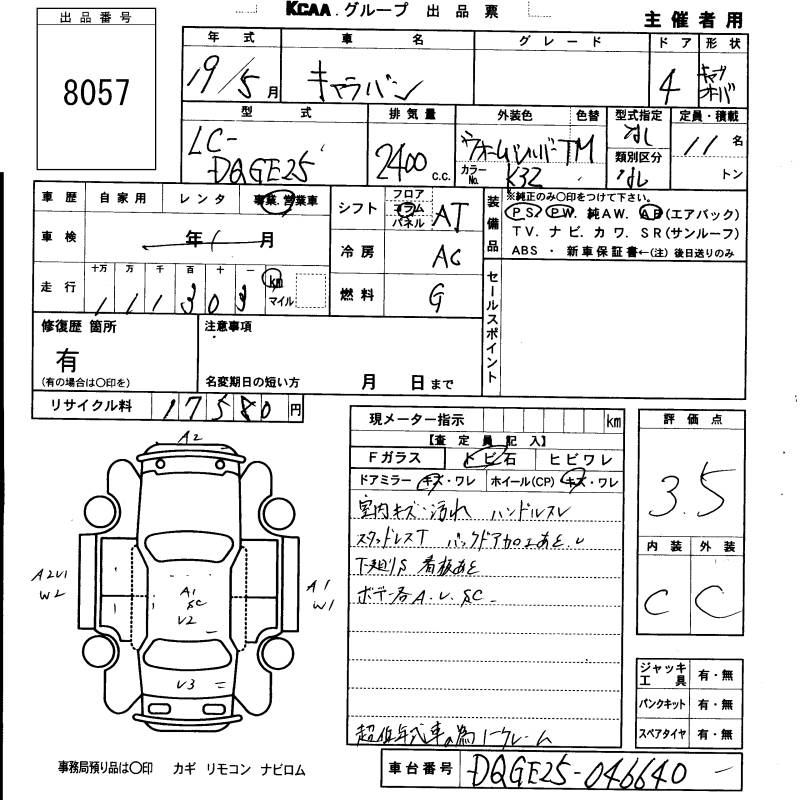 KCAA.グループ 出品票
主催者用
出品番号
8057
年式 車名 グレード ドア 形状
19/5月 キャラバン 4 キャブオーバ
型式 排気量 外装色 色替 型式指定 定員・積載
LC-DQGE25 2400c.c. TM カラーNo. K32 なし 11名
類別区分 なし トン
車歴 自家用 レンタ 事業.営業車
車検 年 月
走行 十万 万 千 百 十 一
111303 km マイル
シフト フロア コラム パネル AT
冷房 AC
燃料 G
装備品
※純正のみ〇印をつけて下さい。
PS PW. 純AW. AB(エアバック)
TV. ナビ. カワ. SR(サンルーフ)
ABS ・ 新車保証書←(注)後日送りのみ
セールスポイント
修復歴 箇所
有
(有の場合は〇印を)
注意事項
名変期日の短い方 月 日まで
リサイクル料 17580円
現メーター指示 km
【査定員記入】
Fガラス トビ石 ヒビワレ
ドアミラー キズ・ワレ ホイール(CP) キズ・ワレ
室内キズ・汚れ ハンドルスレ
スタッドレスT バックドア加工あと.U
下廻りS 看板あと
ボデー各A.U.SC
超低年式車の為ノークレーム
評価点
3.5
内装 外装
C C
ジャッキ工具 有・無
パンクキット 有・無
スペアタイヤ 有・無
A2
A2U1
W2
A1
SC
U2
A1
W1
U3
事務局預り品は〇印 カギ リモコン ナビロム
車台番号 DQGE25-046640